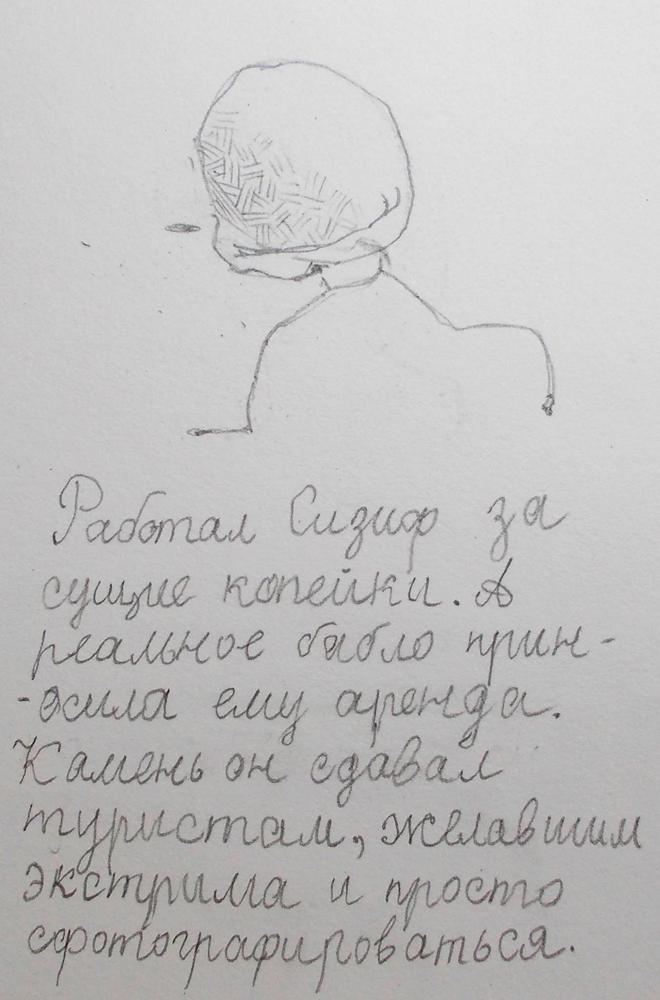 Работал Сизиф за
сущие копейки. А
реальное бабло прин-
-осила ему аренда.
Камень он сдавал
туристам, желавшим
экстрима и просто
сфотографироваться.